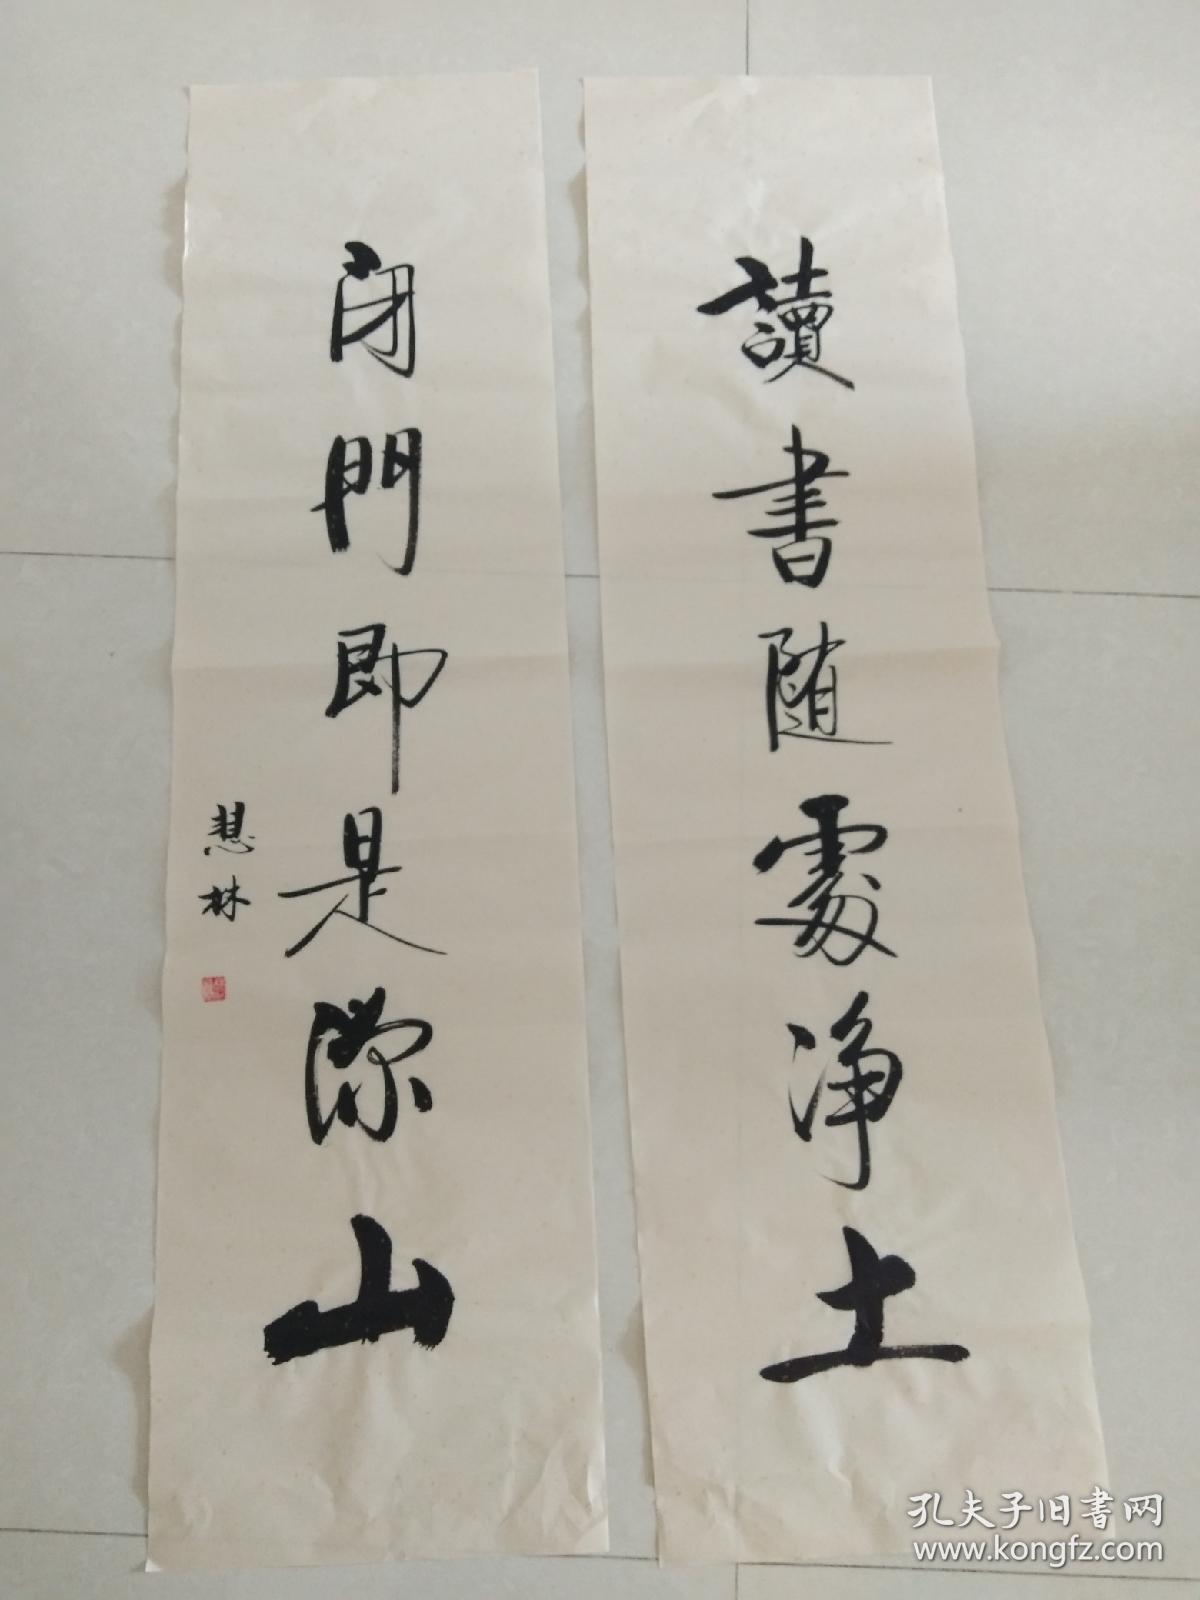 讀書随處浄土
闭門即是深山
慧林
孔夫子旧书网
www.kongfz.com